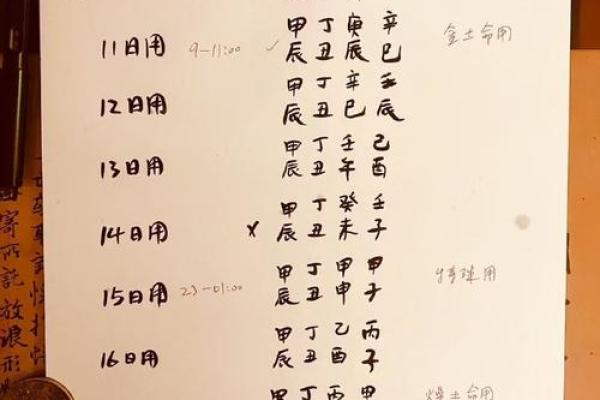 甲 丁 庚 辛
11日用 9-11:00 ✓ 辰 丑 辰 巳 金土命用
甲 丁 辛 壬
12日用 辰 丑 巳 辰
甲 丁 壬 己
13日用 辰 丑 午 酉
甲 丁 癸 壬
14日用 × 辰 丑 未 子
甲 丁 甲 甲
15日用 23-01:00 辰 丑 申 子 特殊用
甲 丁 乙 丙
16日用 辰 丑 酉 子
甲 丁 丙 甲 燥土命用
寄所託放浪形